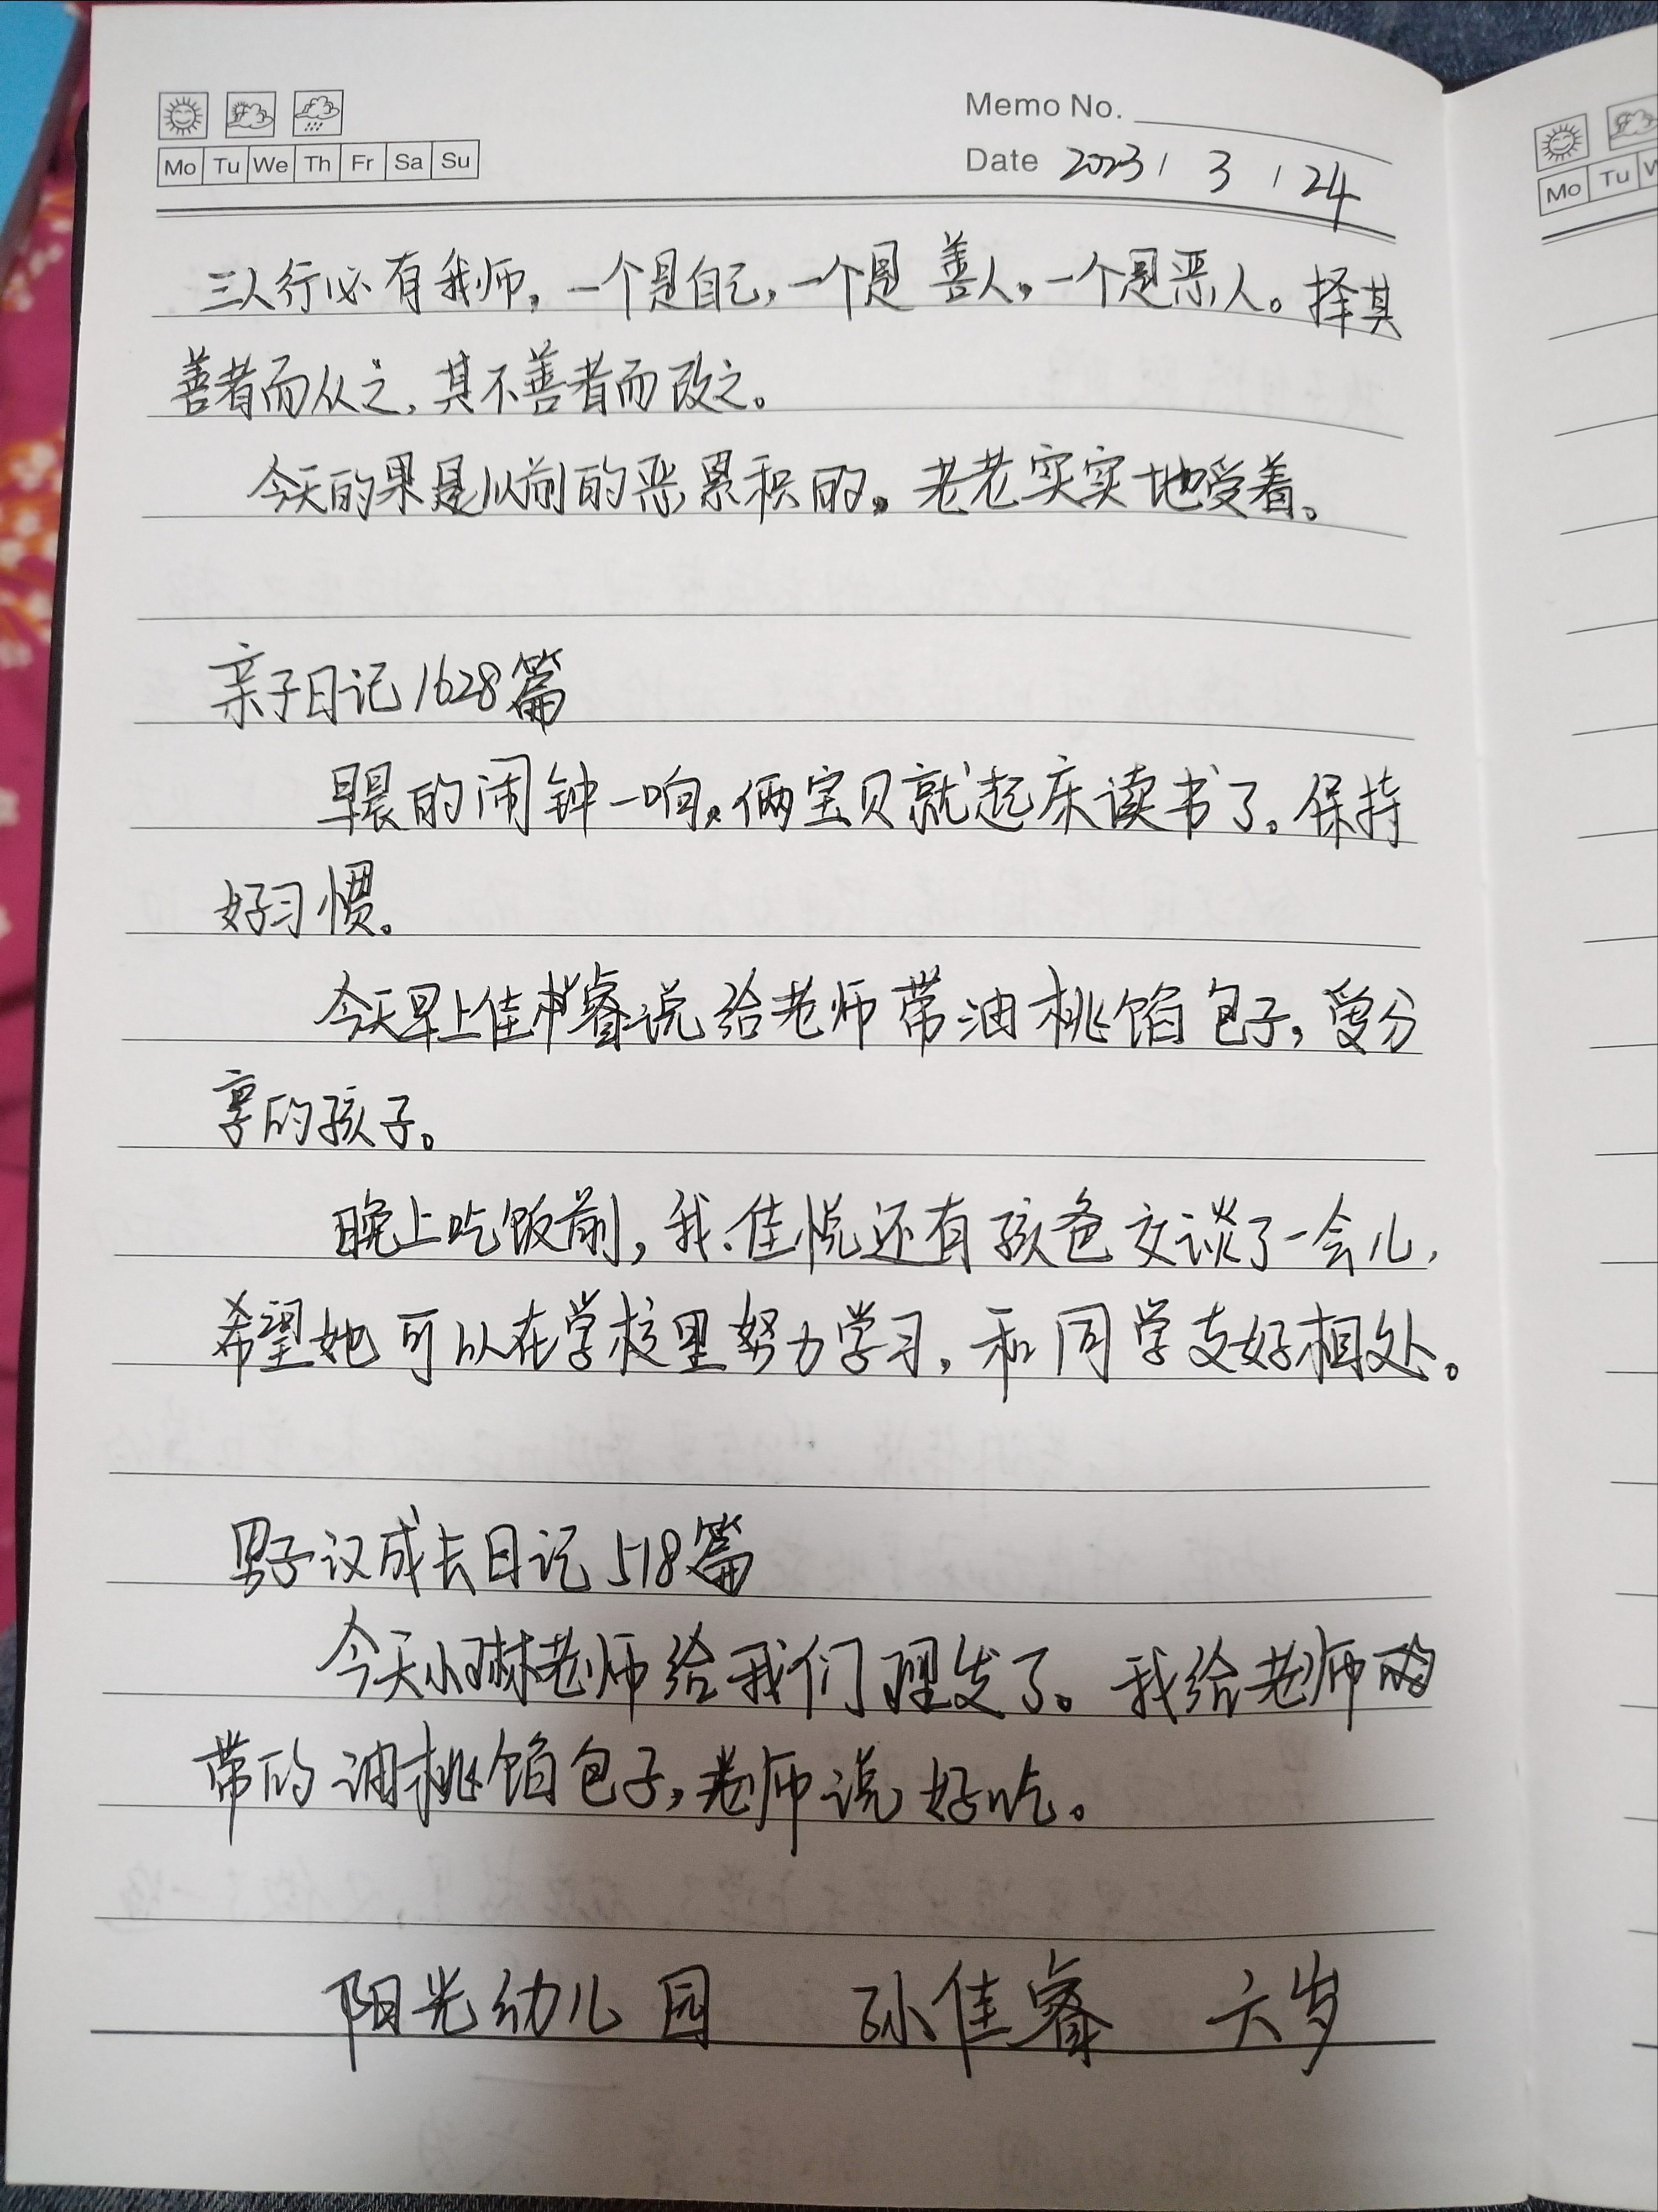 Memo No.
Mo Tu We Th Fr Sa Su
Date 2023 / 3 / 24
三人行必有我师，一个是自己，一个是善人，一个是恶人。择其
善者而从之，其不善者而改之。
今天的果是以前的恶累积的。老老实实地受着。
亲子日记1628篇
早晨的闹钟一响，俩宝贝就起床读书了。保持
好习惯。
今天早上佳睿说给老师带油桃馅包子，爱分
享的孩子。
晚上吃饭前，我、佳悦还有孩爸交谈了一会儿，
希望她可以在学校里努力学习，和同学友好相处。
男子汉成长日记518篇
今天小琳老师给我们理发了。我给老师
带的油桃馅包子，老师说好吃。
阳光幼儿园 孙佳睿 六岁
Mo Tu